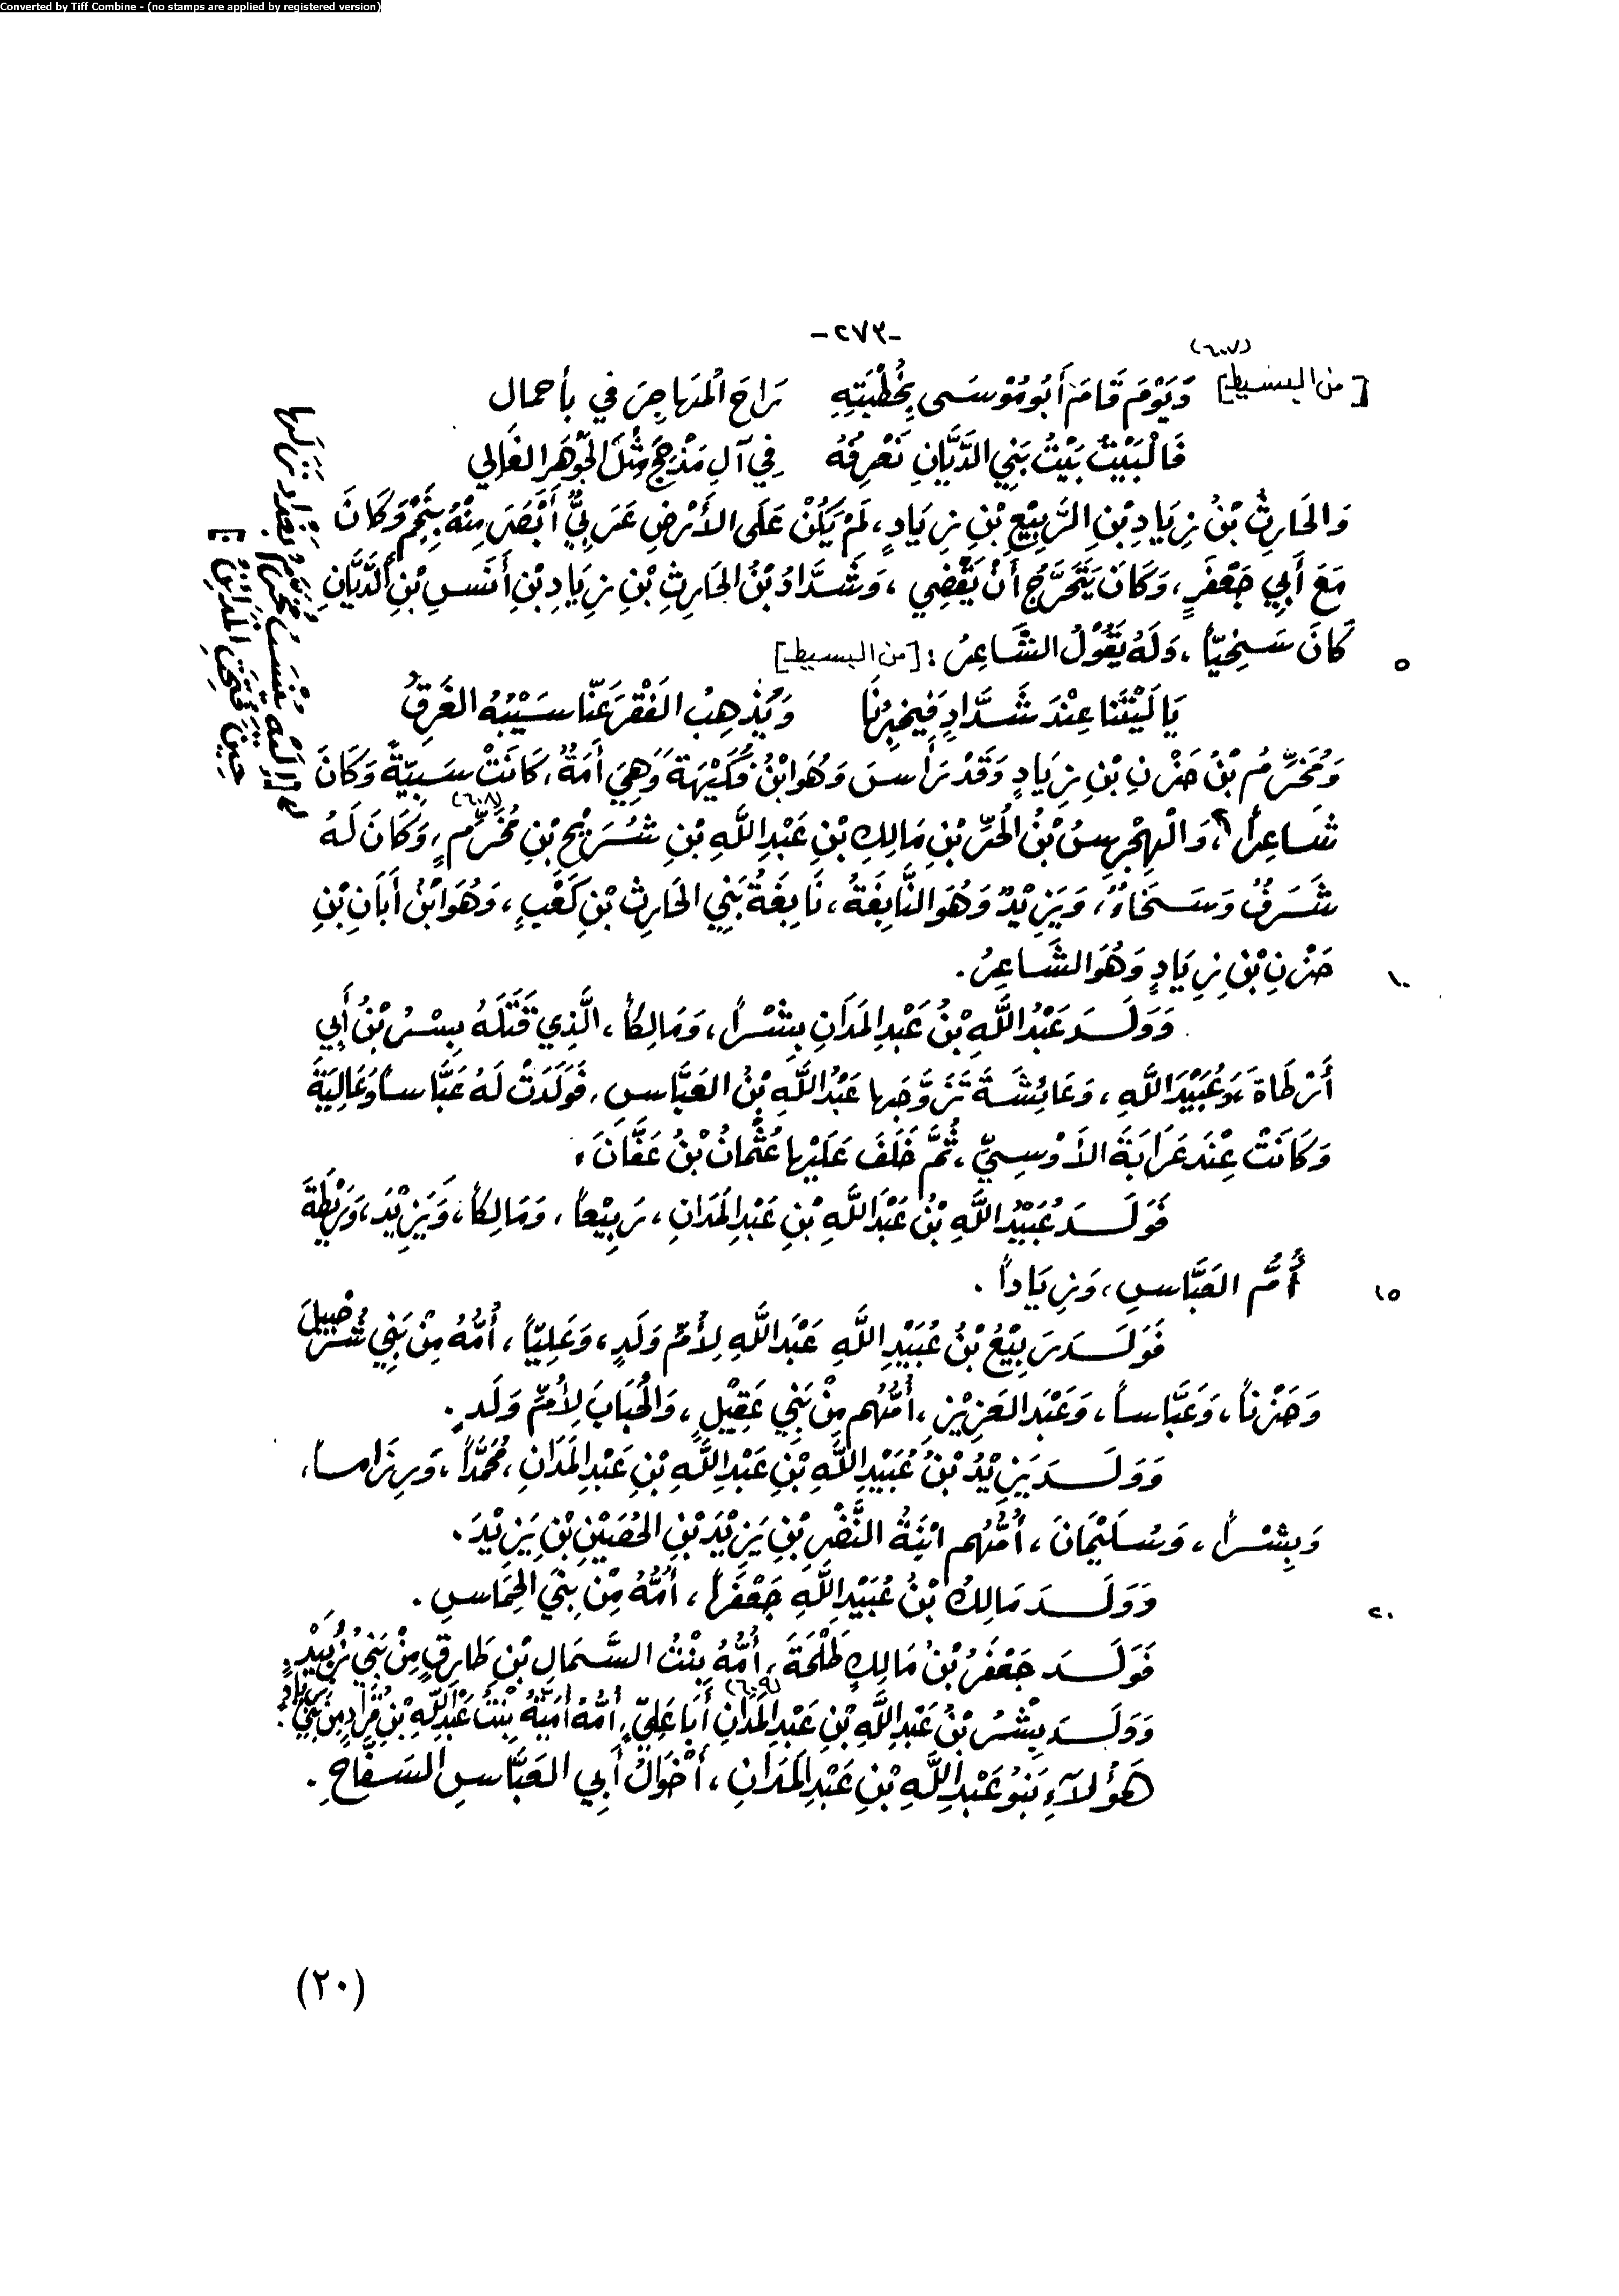 Converted by Tiff Combine - (no stamps are applied by registered version)
-٢٧٣-
(٦٠٧)
[من البسيط] وَيَوْمَ قَامَ أَبُو مُوْسَى بِخُطْبَتِهِ رَاحَ الْمُهَاجِرَ في بأحمال
فَالْبَيْتُ بَيْتُ بَنِي الدَّيَّانِ نَعْرِفُهُ فِي آلِ مَذْحِجَ مِثْلَ الجَوْهَرِ الغَالِي
وَالحَارِثُ بْنُ زِيَادِ بْنِ الرَّبِيْعِ بْنِ زِيَادٍ، لَمْ يَكُنْ عَلَى الأَرْضِ عَرَبِيٌّ أَبْصَرَ مِنْهُ بِنَجْمٍ وَكَانَ
مَعَ أَبِي جَعْفَرٍ، وَكَانَ يَتَحَرَّجُ أَنْ يَقْضِي، وَشَدَّادُ بْنُ الحَارِثِ بْنِ زِيَادِ بْنِ أَنَسِ بْنِ الدَّيَّانِ
٥ كَانَ سَخِيّاً، وَلَهُ يَقُوْلُ الشَّاعِرُ: [من البسيط]
يَا لَيْتَنَا عِنْدَ شَدَّادٍ فَيُخْبِرُنَا وَيُذْهِبُ الفَقْرَ عَنَّا سَيْبُهُ الغَرَقُ
وَمُخَرِّمُ بْنُ حَزْنِ بْنِ زِيَادٍ وَقَدْ رَأَسَ وَهُوَ ابْنُ فُكَيْهَةَ وَهِيَ أَمَةٌ، كَانَتْ سَبِيَّةً وَكَانَ
شَاعِراً، وَالْهِجْرِسُ بْنُ الحُرِّ بْنِ مَالِكِ بْنِ عَبْدِ اللَّهِ بْنِ شُرَيْحِ بْنِ مُخَرِّمٍ(٦٠٨)، وَكَانَ لَهُ
شَرَفٌ وَسَخَاءٌ، وَيَزِيْدُ وَهُوَ النَّابِغَةُ، نَابِغَةُ بَنِي الحَارِثِ بْنِ كَعْبٍ، وَهُوَ ابْنُ أَبَانِ بْنِ
١٠ حَزْنِ بْنِ زِيَادٍ وَهُوَ الشَّاعِرُ.
وَوَلَدَ عَبْدُ اللَّهِ بْنُ عَبْدِ المَدَانِ بِشْراً، وَمَالِكاً، الَّذِي قَتَلَهُ بِسْرُ بْنُ أَبِي
أَرْطَاةَ، وَعُبَيْدَ اللَّهِ، وَعَائِشَةَ تَزَوَّجَها عَبْدُ اللَّهِ بْنُ العَبَّاسِ، فَوَلَدَتْ لَهُ عَبَّاساً وَعَالِيَةَ
وَكَانَتْ عِنْدَ عَرَابَةَ الأَوْسِيِّ، ثُمَّ خَلَفَ عَلَيْها عُثْمَانُ بْنُ عَفَّانَ.
فَوَلَدَ عُبَيْدُ اللَّهِ بْنُ عَبْدِ اللَّهِ بْنِ عَبْدِ المَدَانِ، رَبِيْعاً، وَمَالِكاً، وَيَزِيْدَ، وَرَيْطَةَ
١٥ أُمَّ العَبَّاسِ، وَزِيَاداً.
فَوَلَدَ رَبِيْعُ بْنُ عُبَيْدِ اللَّهِ عَبْدَ اللَّهِ لِأُمِّ وَلَدٍ، وَعَلِيّاً، أُمُّهُ مِنْ بَنِي شُرَحْبِيلَ
وَحَزْناً، وَعَبَّاساً، وَعَبْدَ العَزِيْزِ، أُمُّهُم مِنْ بَنِي عَقِيْلٍ، وَالحُبَابَ لِأُمِّ وَلَدٍ.
وَوَلَدَ يَزِيْدُ بْنُ عُبَيْدِ اللَّهِ بْنِ عَبْدِ اللَّهِ بْنِ عَبْدِ المَدَانِ، مُحَمَّداً، وَرِزَاماً،
وَبِشْراً، وَسُلَيْمَانَ، أُمُّهُم ابْنَةُ النَّضْرِ بْنِ يَزِيْدَ بْنِ الحُصَيْنِ بْنِ يَزِيْدَ.
٢٠ وَوَلَدَ مَالِكُ بْنُ عُبَيْدِ اللَّهِ جَعْفَراً، أُمُّهُ مِنْ بَنِي الحِمَاسِ.
فَوَلَدَ جَعْفَرُ بْنُ مَالِكٍ طَلْحَةَ، أُمُّهُ بِنْتُ السَّمَالِ بْنِ طَارِقٍ مِنْ بَنِي زُبَيْدٍ.
وَوَلَدَ بِشْرُ بْنُ عَبْدِ اللَّهِ بْنِ عَبْدِ المَدَانِ(٦٠٩) أَبَا عَلِيٍّ، أُمُّهُ أُمَيَّةُ بِنْتُ عَبْدِ اللَّهِ بْنِ قُرَادٍ مِنْ بَنِي زِيَادٍ.
هَؤُلاَءِ بَنُو عَبْدِ اللَّهِ بْنِ عَبْدِ المَدَانِ، أَخْوَالُ أَبِي العَبَّاسِ السَفَّاحِ.
إِلَيْهِ يُنْسَبُ مُخَرِّمُ بَغْدَادَ نَزَلَها
حِيْنَ فُتِحَتِ المَدَائِنُ]
(٢٠)